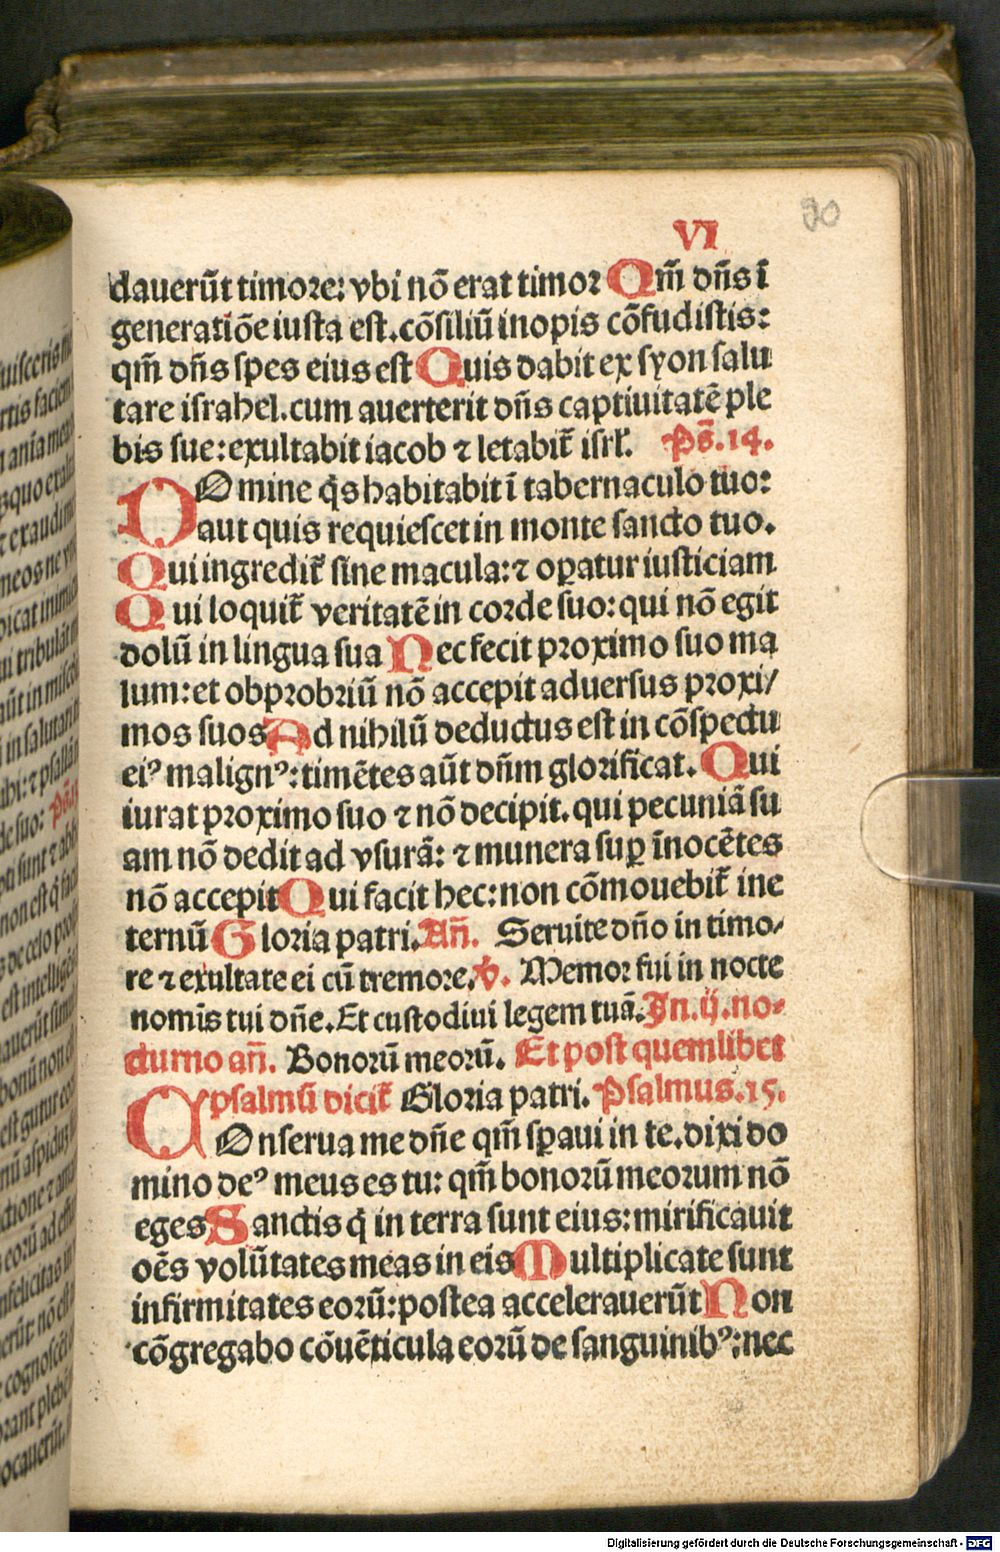 90
VI
dauerūt timore: vbi nō erat timor Qm̄ dn̄s ī
generatiōe iusta est. cōsiliū inopis cōfudistis:
qm̄ dn̄s spes eius est Quis dabit ex syon salu
tare israhel. cum auerterit dn̄s captiuitatē ple
bis sue: exultabit iacob ⁊ letabit̄ isrl̄. Ps̄. 14.
DOmine q̄s habitabit ī tabernaculo tuo:
aut quis requiescet in monte sancto tuo.
Qui ingredit̄ sine macula: ⁊ oꝑatur iusticiam
Qui loquit̄ veritatē in corde suo: qui nō egit
dolū in lingua sua Nec fecit proximo suo ma
lum: et obprobriū nō accepit aduersus proxi/
mos suos Ad nihilū deductus est in cōspectu
eiꝰ malignꝰ: timētes aūt dn̄m glorificat. Qui
iurat proximo suo ⁊ nō decipit. qui pecuniā su
am nō dedit ad vsurā: ⁊ munera suꝑ īnocētes
nō accepit Qui facit hec: non cōmouebit̄ in e
ternū Gloria patri. An̄. Seruite dn̄o in timo/
re ⁊ exultate ei cū tremore. ꝟ. Memor fui in nocte
nomīs tui dn̄e. Et custodiui legem tuā. In. ij. no-
cturno an̄. Bonorū meorū. Et post quemlibet
psalmū dicit̄ Gloria patri. Psalmus. 15.
COnserua me dn̄e qm̄ sꝑaui in te. dixi do
mino deꝰ meus es tu: qm̄ bonorū meorum nō
eges Sanctis q̄ in terra sunt eius: mirificauit
oēs volūtates meas in eis Multiplicate sunt
infirmitates eorū: postea accelerauerūt Non
cōgregabo cōuēticula eorū de sanguinibꝰ: nec
Digitalisierung gefördert durch die Deutsche Forschungsgemeinschaft - DFG